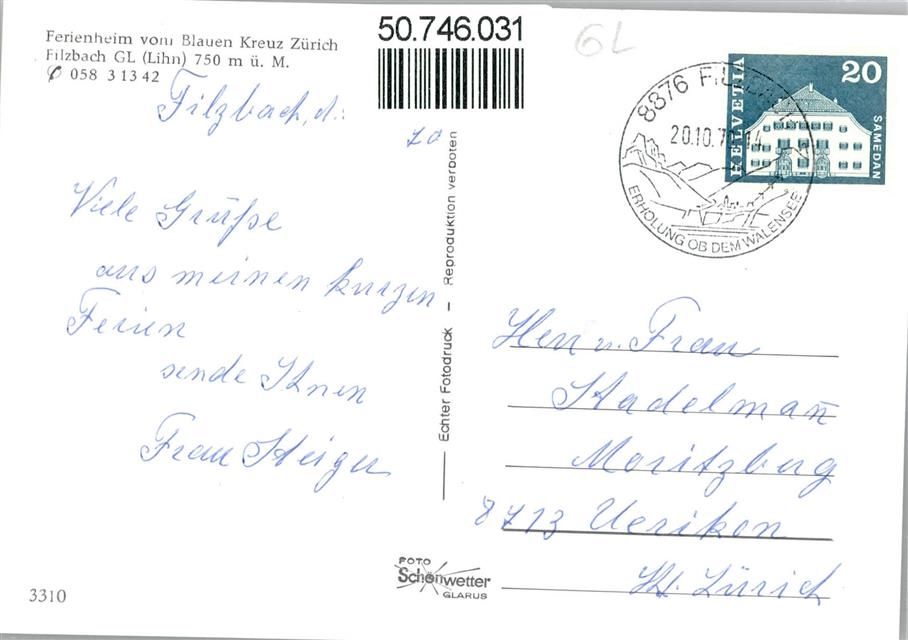 50.746.031
GL
Ferienheim vom Blauen Kreuz Zürich
Filzbach GL (Lihn) 750 m ü. M.
✆ 058 3 13 42
Filzbach, d.:
20
Viele Grüße
aus meinen kurzen
Ferien
sende Ihnen
Frau Steiger
Echter Fotodruck – Reproduktion verboten
8876 FILZBACH
20.10.7 -14
ERHOLUNG OB DEM WALENSEE
HELVETIA
20
SAMEDAN
Herr u. Frau
Stadelmañ
Moritzberg
8713 Uerikon
Kt. Zürich
FOTO
Schönwetter
GLARUS
3310